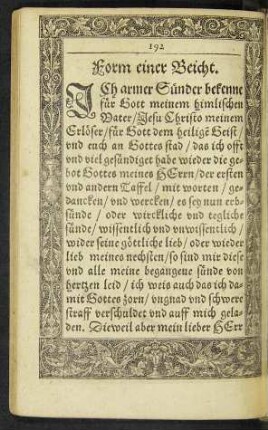 192
Form einer Beicht.
ICh armer Sünder bekenne
für Gott meinem himlischen
Vater/Jesu Christo meinem
Erlöser/für Gott dem heiligẽ Geist/
vnd euch an Gottes stad/das ich offt
vnd viel gesündiget habe wieder die ge-
bot Gottes meines HErrn/der ersten
vnd andern Taffel/mit worten/ge-
dancken/vnd wercken/es sey nun erb-
sünde/oder wirckliche vnd tegliche
sünde/wissentlich vnd vnwissentlich/
wider seine göttliche lieb/oder wieder
lieb meines nechsten/so sind mir diese
vnd alle meine begangene sünde von
hertzen leid/ich weis auch das ich da-
mit Gottes zorn/vngnad vnd schwere
straff verschuldet vnd auff mich gela-
den. Dieweil aber mein lieber HErr